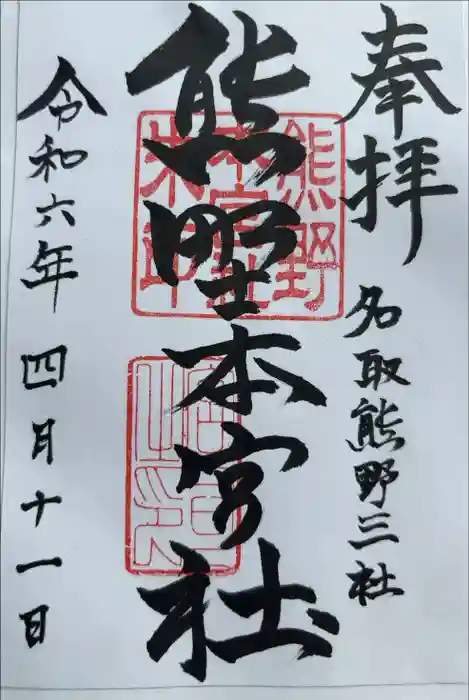 奉拝
名取熊野三社
熊野本宮社
令和六年 四月十一日
熊野
本宮社
朱印